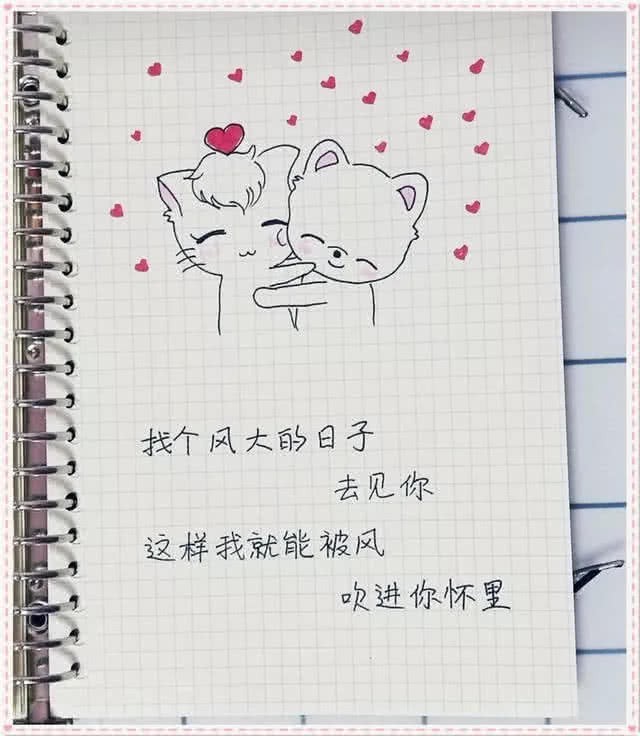 找个风大的日子
去见你
这样我就能被风
吹进你怀里